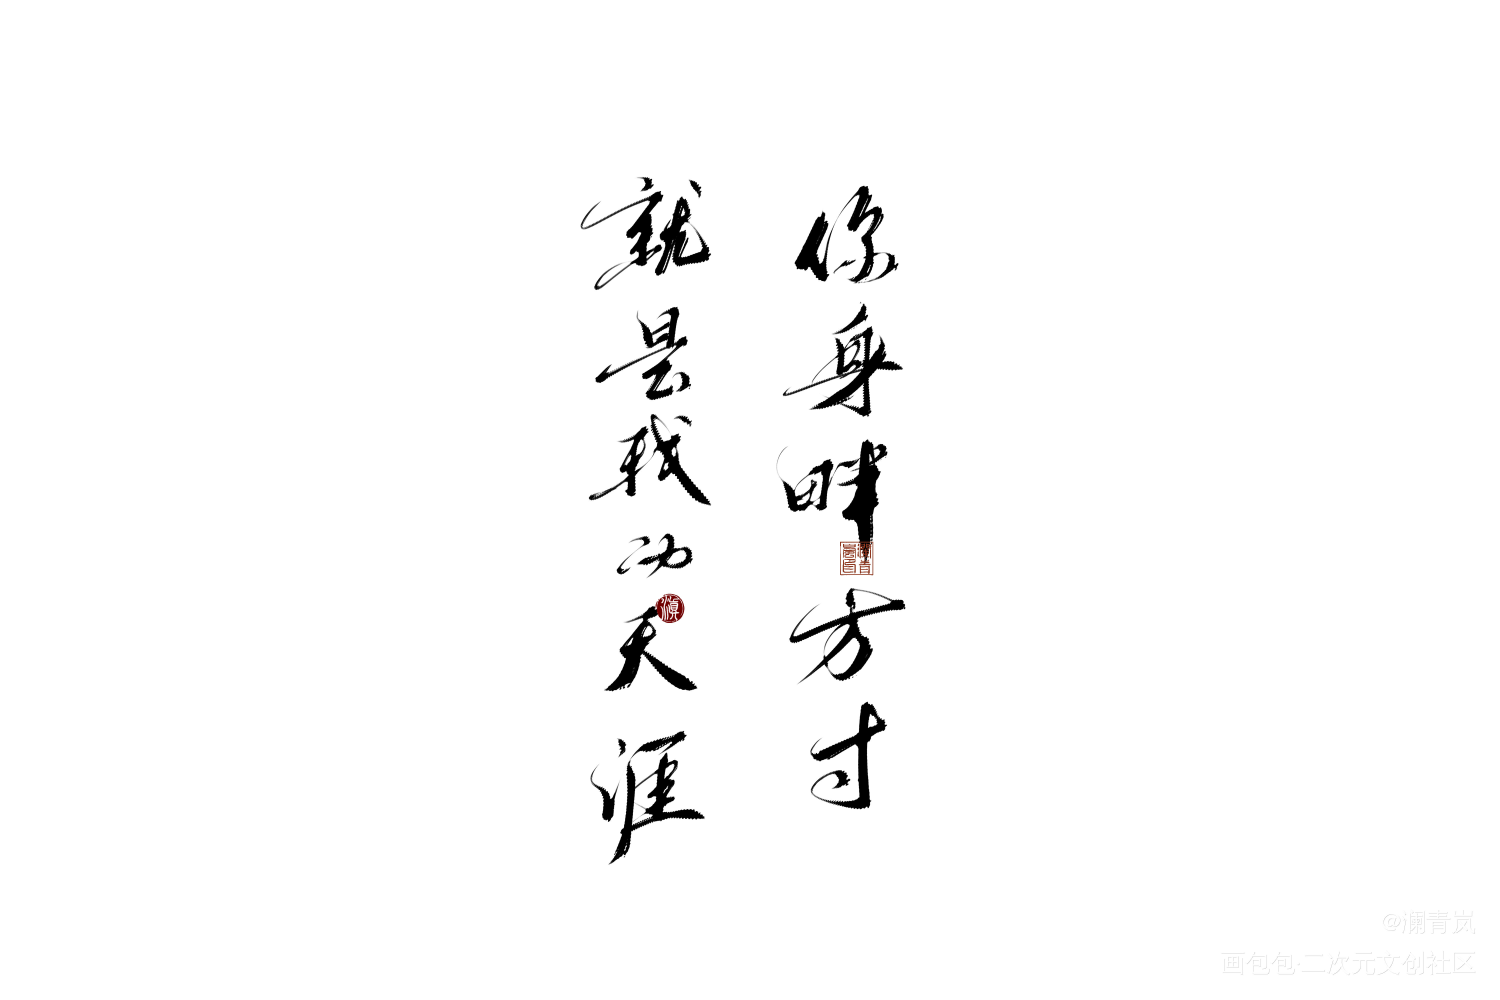 你身畔方寸
就是我的天涯
@澜青岚
画包包·二次元文创社区